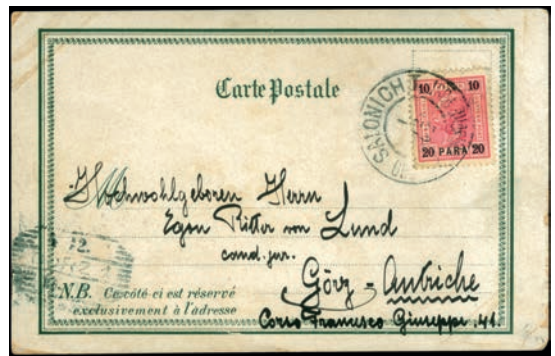 Carte Postale
10 10
20 PARA 20
SALONICH I
Hochwohlgeboren Herrn
Egon Ritter von Lund
cand. jur.
Görz - Autriche
Corso Francesco Giuseppe . 41.
12.
N.B. Ce côté-ci est réservé
exclusivement à l'adresse